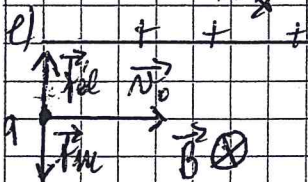 e) + + +
F⃗el v⃗₀
F⃗m B⃗ ⊗